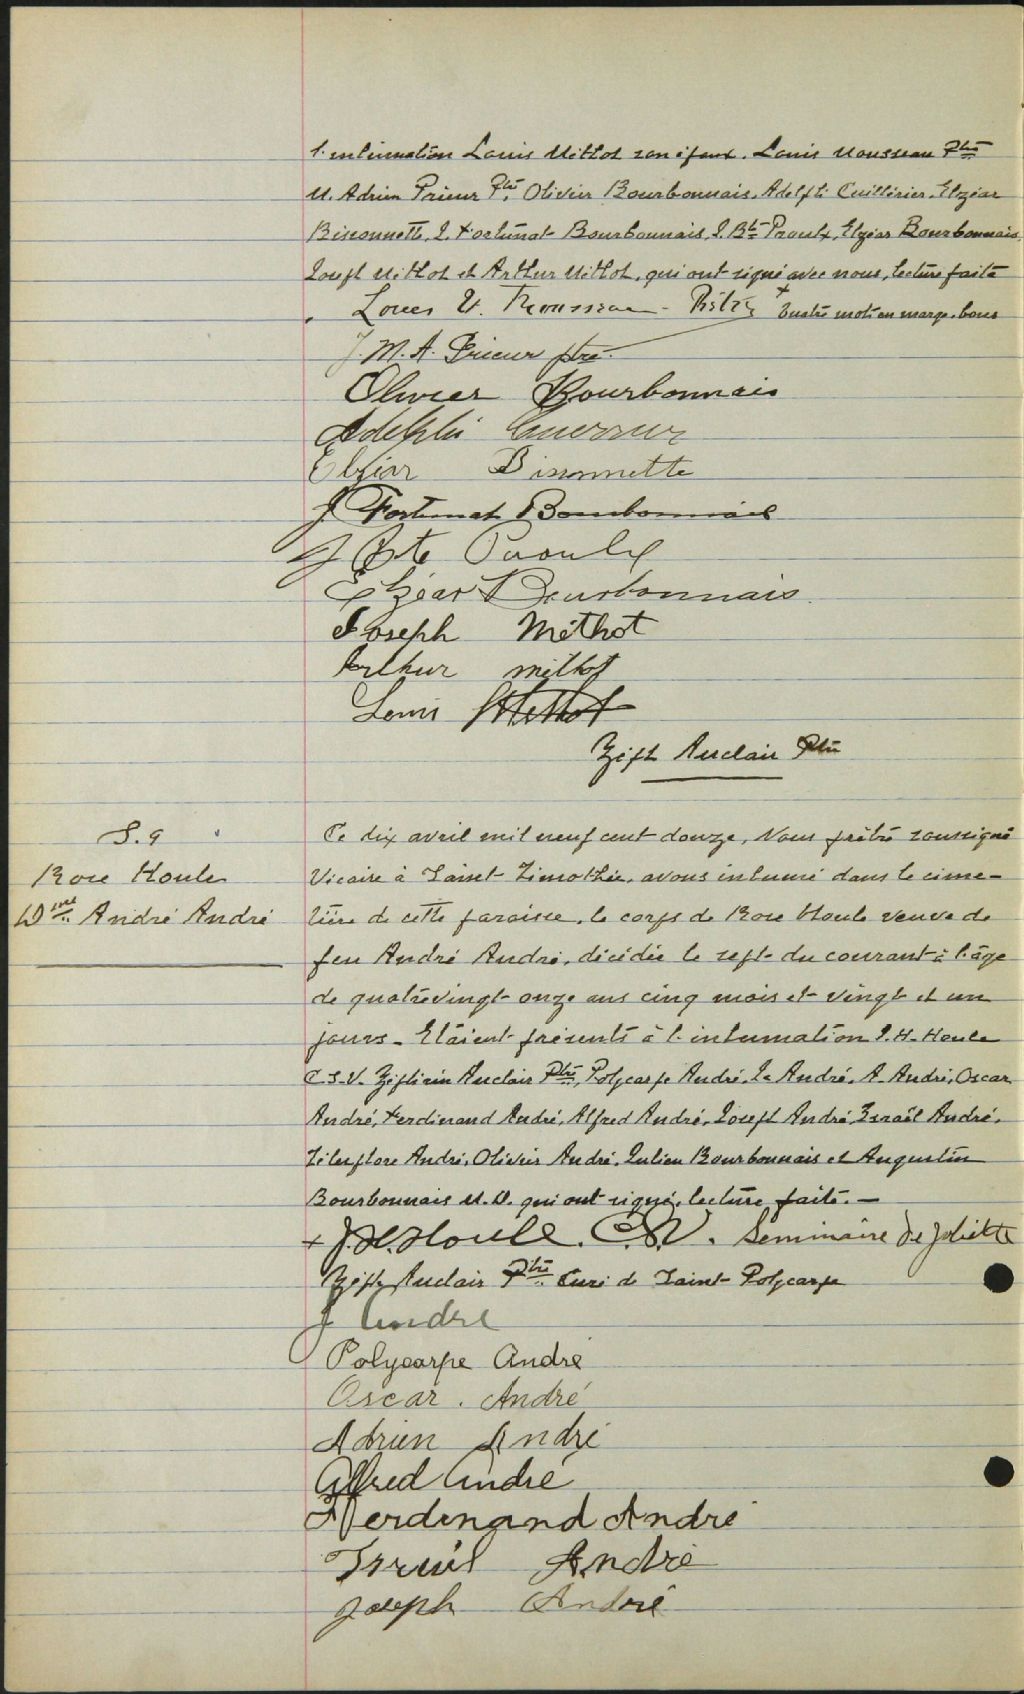 l'inhumation Louis Méthot son époux, Louis Mousseau Ptre
M. Adrien Prieur Ptre, Olivier Bourbonnais, Adelphi Cuillérier, Elzéar
Bissonnette, J. Fortunat Bourbonnais, J. Bte Proulx, Elzéar Bourbonnais,
Joseph Méthot et Arthur Méthot, qui ont signé avec nous, lecture faite
+ quatre mots en marge, bons
Louis Mousseau Ptre
J. M. A. Prieur ptre.
Olivier Bourbonnais
Adelphi
Elzéar Bissonnette
J Fortunat Bourbonnais
J Bte Proulx
Elzéar Bourbonnais.
Joseph Méthot
Arthur méthot
Louis Méthot
Zéph Auclair Ptre
S. 9
Rose Houle
Dme André André
Ce dix avril mil neuf cent douze, Nous prêtre soussigné
Vicaire à Saint-Timothée, avons inhumé dans le cime-
tière de cette paroisse, le corps de Rose Houle veuve de
feu André André, décédée le sept du courant à l'âge
de quatrevingt-onze ans cinq mois et vingt et un
jours - Etaient présents à l'inhumation J. H. Houle
C.S.V. Zéphirin Auclair Ptre, Polycarpe André, Js André, A. André, Oscar
André, Ferdinand André, Alfred André, Joseph André, Israël André,
Télesphore André, Olivier André, Julien Bourbonnais et Augustin
Bourbonnais M.D. qui ont signé, lecture faite. -
+ J. H. Houle. C.S.V. Séminaire de Joliette
Zéph Auclair Ptre. Curé de Saint-Polycarpe
J André
Polycarpe André
Oscar. André
Adrien André
Alfred André
Ferdinand André
Israel André
Joseph André